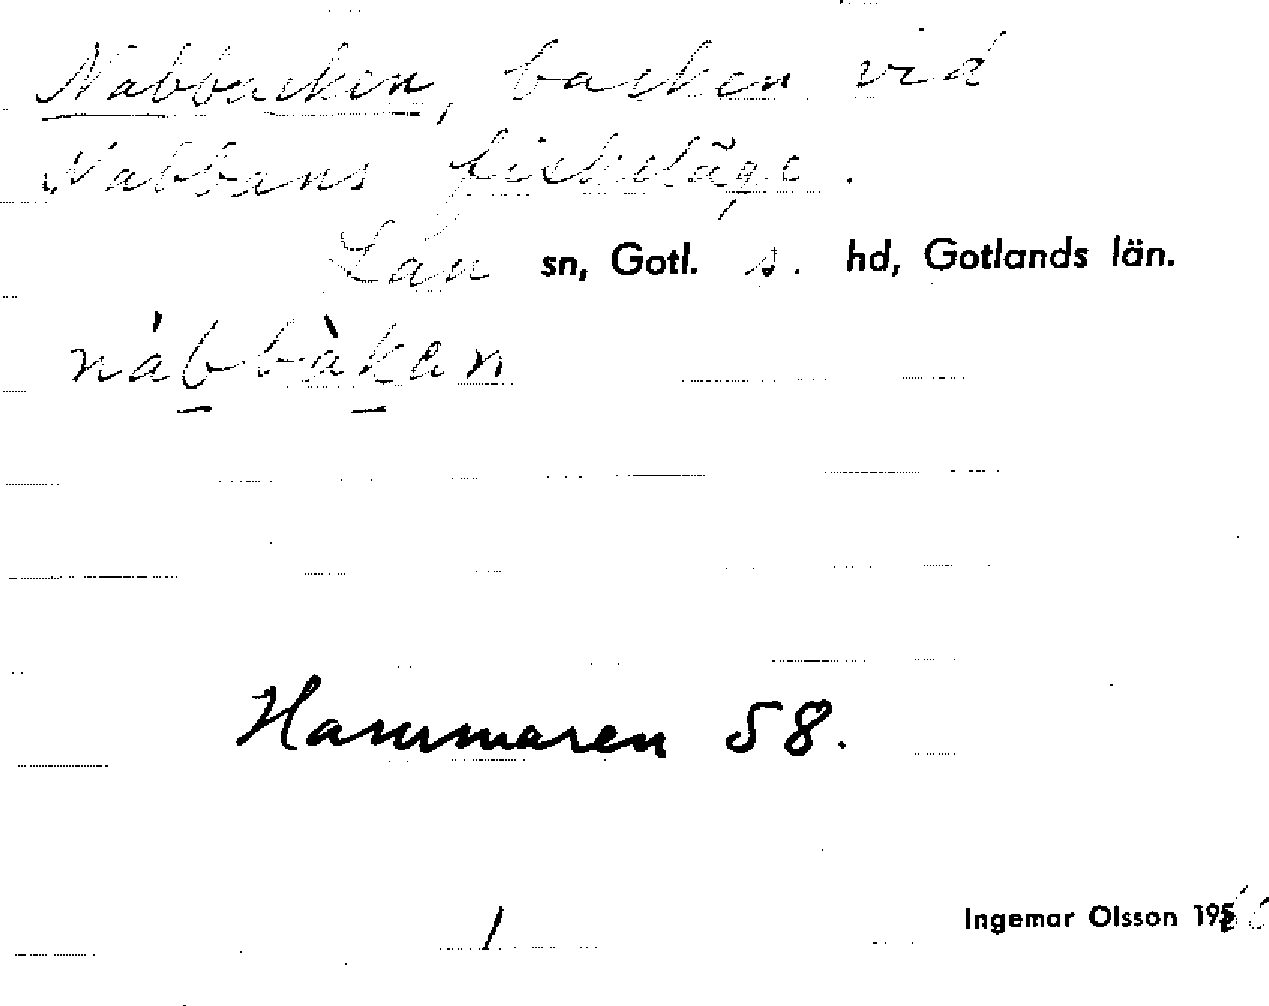 Nabbacken, backen vid
Nabbans fiskeläge.
Lau sn, Gotl. s. hd, Gotlands län.
nábbàkan
Hammaren 58.
1
Ingemar Olsson 195